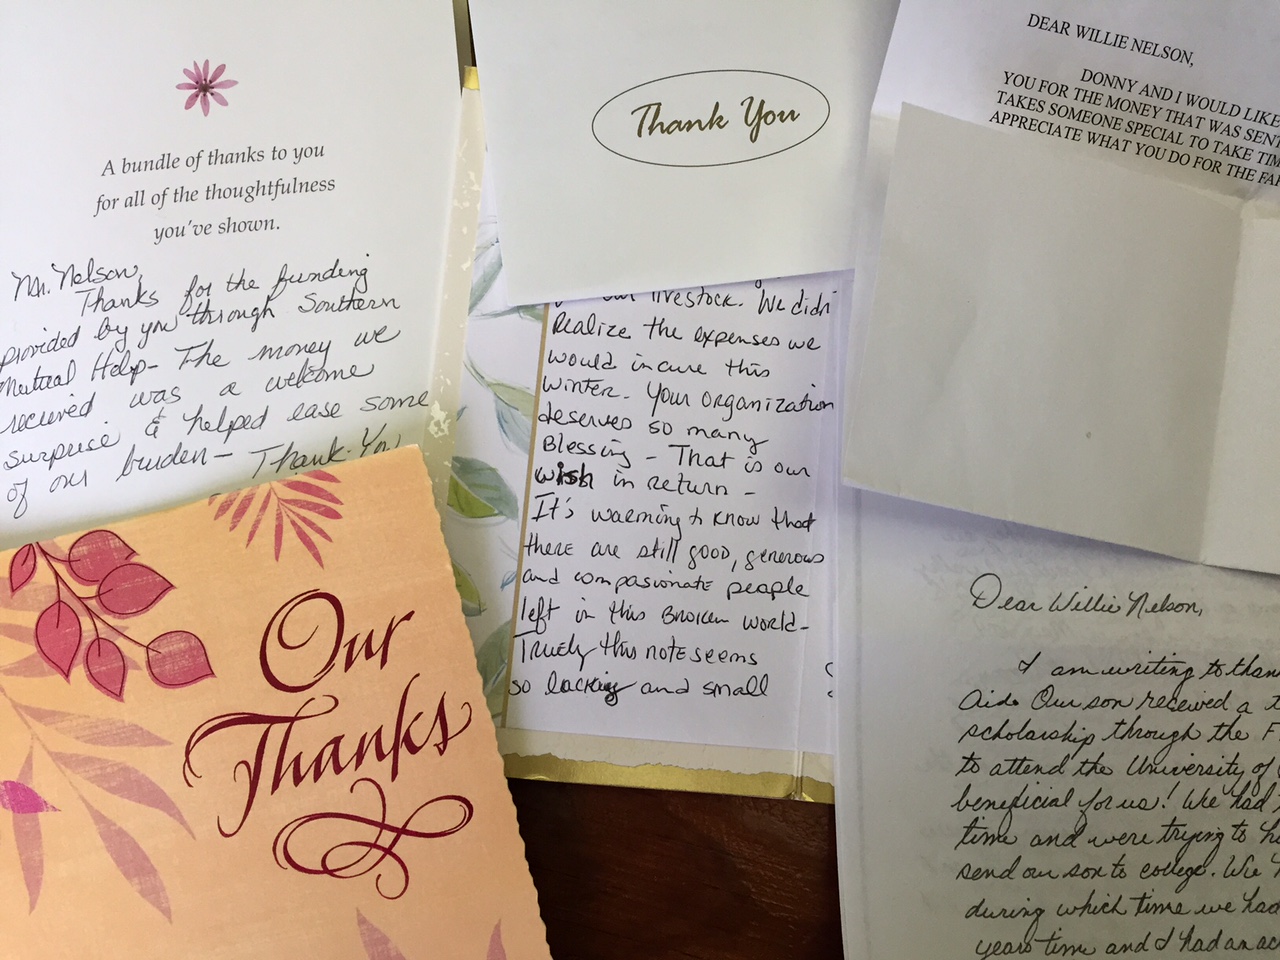 A bundle of thanks to you
for all of the thoughtfulness
you've shown.
Mr. Nelson,
Thanks for the funding
provided by you through Southern
Mutual Help - The money we
recieved was a welcome
surprise & helped ease some
of our burden - Thank You
Our
Thanks
Thank You
livestock. We didn
Realize the expenses we
would incure this
winter. Your organization
deserves so many
Blessing - That is our
wish in return -
It's warming to know that
there are still good, generous
and compasionate people
left in this Broken world -
Truely this note seems
so lacking and small
DEAR WILLIE NELSON,
DONNY AND I WOULD LIKE
YOU FOR THE MONEY THAT WAS SENT
TAKES SOMEONE SPECIAL TO TAKE TIM
APPRECIATE WHAT YOU DO FOR THE FA
Dear Willie Nelson,
I am writing to than
Aid. Our son received a
scholarship through the F
to attend the University of
beneficial for us! We had
time and were trying to
send our son to college. We
during which time we had
years time and I had an ac